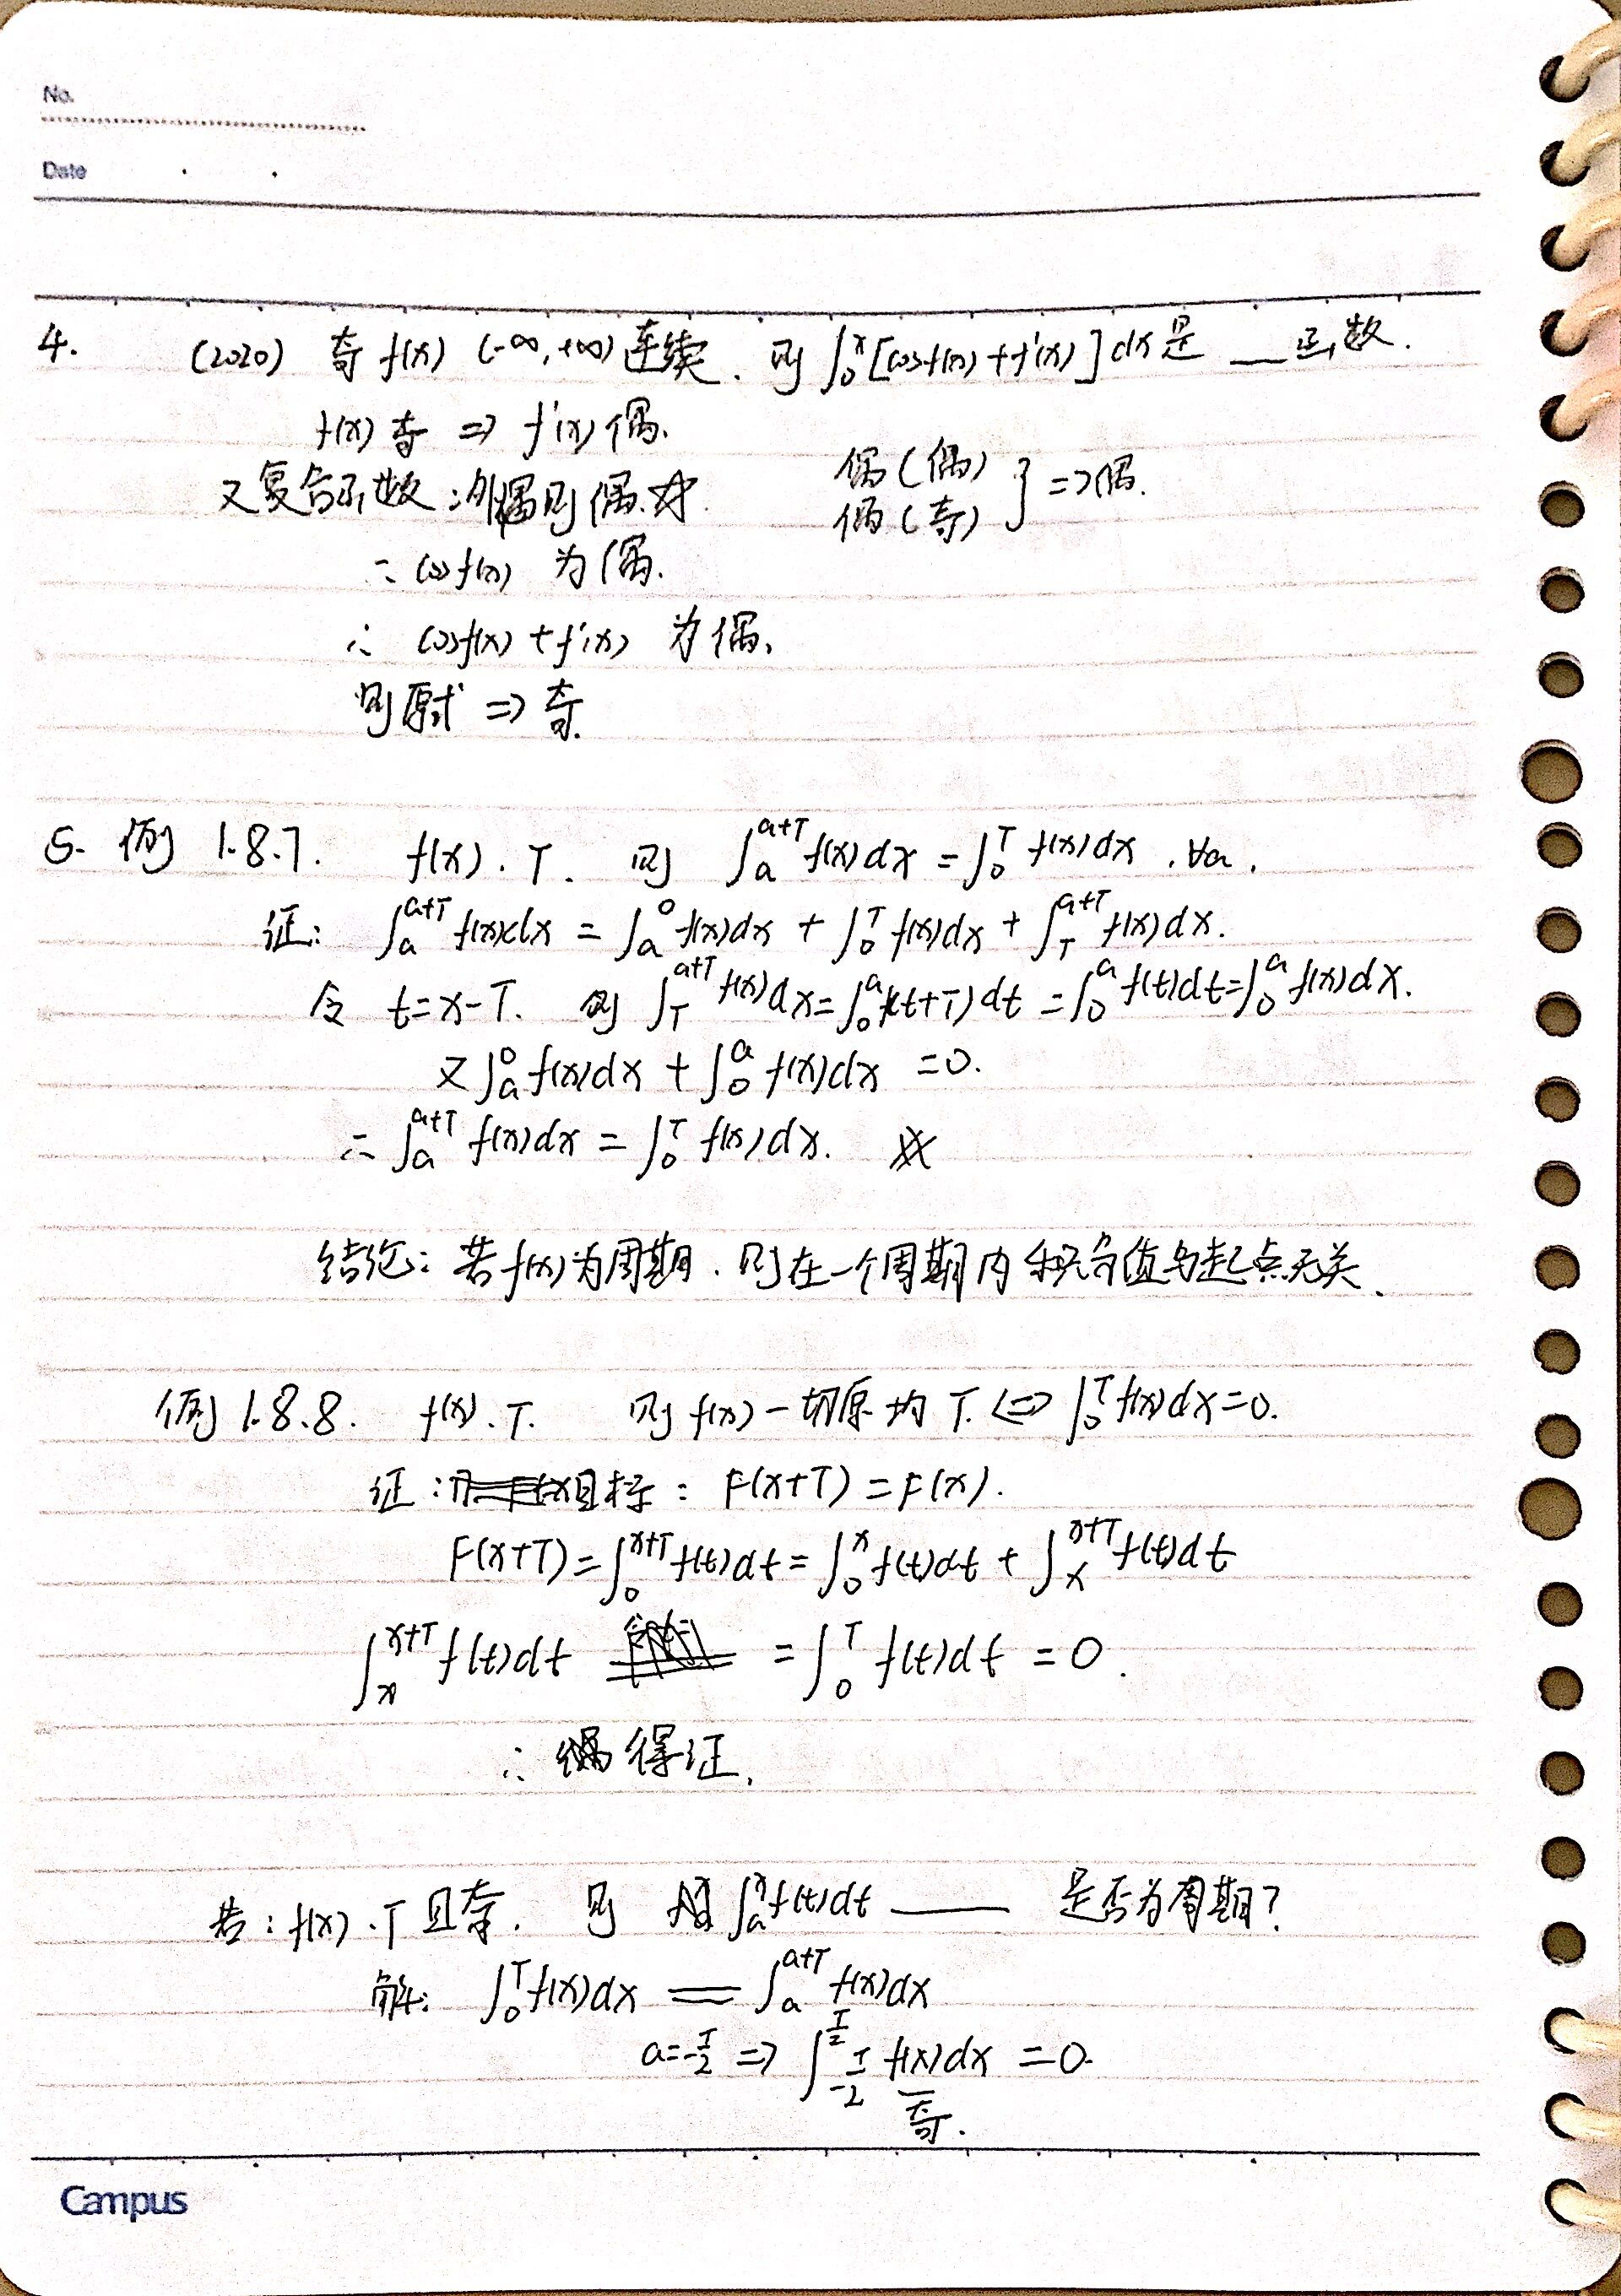 No.
Date
4. (2020) 奇 f(x) (-∞,+∞) 连续. 则 ∫₀ˣ[cosf(x)+f'(x)]dx是 __函数.
f(x)奇 ⇒ f'(x)偶.
又复合函数:外偶则偶. 偶(偶) 偶(奇) } ⇒偶.
∴ cosf(x) 为偶.
∴ cosf(x)+f'(x) 为偶.
则原式 ⇒ 奇.
5. 例 1.8.7. f(x).T. 则 ∫ₐᵃ⁺ᵀ f(x)dx=∫₀ᵀ f(x)dx .∀a.
证: ∫ₐᵃ⁺ᵀ f(x)dx = ∫ₐ⁰ f(x)dx + ∫₀ᵀ f(x)dx + ∫_T^{a+T} f(x)dx.
令 t=x-T. 则 ∫_T^{a+T} f(x)dx=∫₀ᵃ f(t+T)dt =∫₀ᵃ f(t)dt=∫₀ᵃ f(x)dx.
又∫ₐ⁰ f(x)dx + ∫₀ᵃ f(x)dx =0.
∴ ∫ₐᵃ⁺ᵀ f(x)dx = ∫₀ᵀ f(x)dx.
结论: 若f(x)为周期. 则在一个周期内积分值与起点无关.
例 1.8.8. f(x).T. 则f(x)一切原均 T. ⇔ ∫₀ᵀ f(x)dx=0.
证: 目标: F(x+T)=F(x).
F(x+T)=∫₀ˣ⁺ᵀ f(t)dt=∫₀ˣ f(t)dt + ∫ₓˣ⁺ᵀ f(t)dt
∫ₓˣ⁺ᵀ f(t)dt = ∫₀ᵀ f(t)dt = 0.
∴ 得证.
若: f(x).T 且奇. 则 ∫ₐˣ f(t)dt ____ 是否为周期?
解: ∫₀ᵀ f(x)dx = ∫ₐᵃ⁺ᵀ f(x)dx
a=-T/2 ⇒ ∫_{-T/2}^{T/2} f(x)dx =0.
奇.
Campus